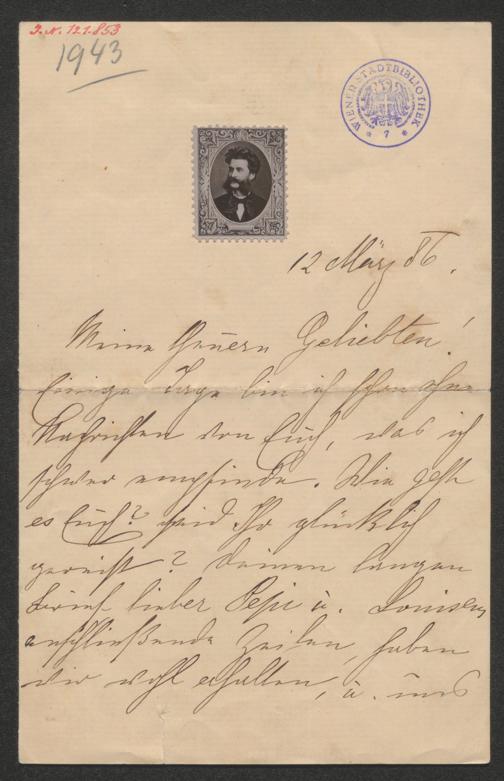 J.N. 121.853
1943
WIENER STADTBIBLIOTHEK
* 7 *
12 März 86.
Meine theuern Geliebten!
Einige Tage bin ich schon ohne
Nachrichten von Euch, was ich
schwer empfinde. Wie geht
es Euch? seid Ihr glücklich
gereist? Deinen langen
Brief lieber Pepi u. Louisens
anschließende Zeilen, haben
wir wohl erhalten, u. uns